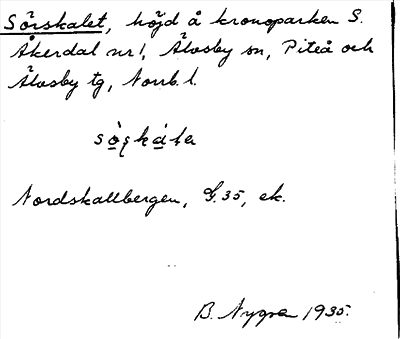 Sörskalet, höjd å kronoparken S.
Åkerdal nr 1, Älvsby sn, Piteå och
Älvsby tg, Norrb. l.
Nordskallbergen, G. 35, ek.
B. Nygren 1935.